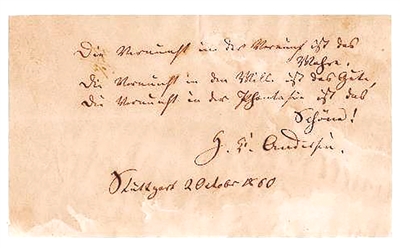 Die Vernunft in der Vernunft ist das
Wahre,
Die Vernunft in den Will. ist das Gute,
Die Vernunft in der Phantasie ist das
Schöne!
H. C. Andersen.
Stuttgart 2 October 1860